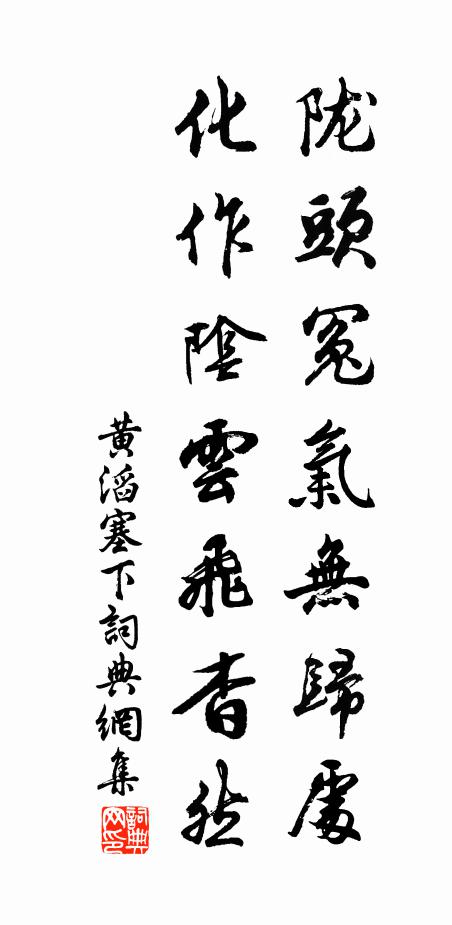 陇頭冤氣無歸處
化作陰雲飛杳然
黄滔塞下詞典網集
詞典网印